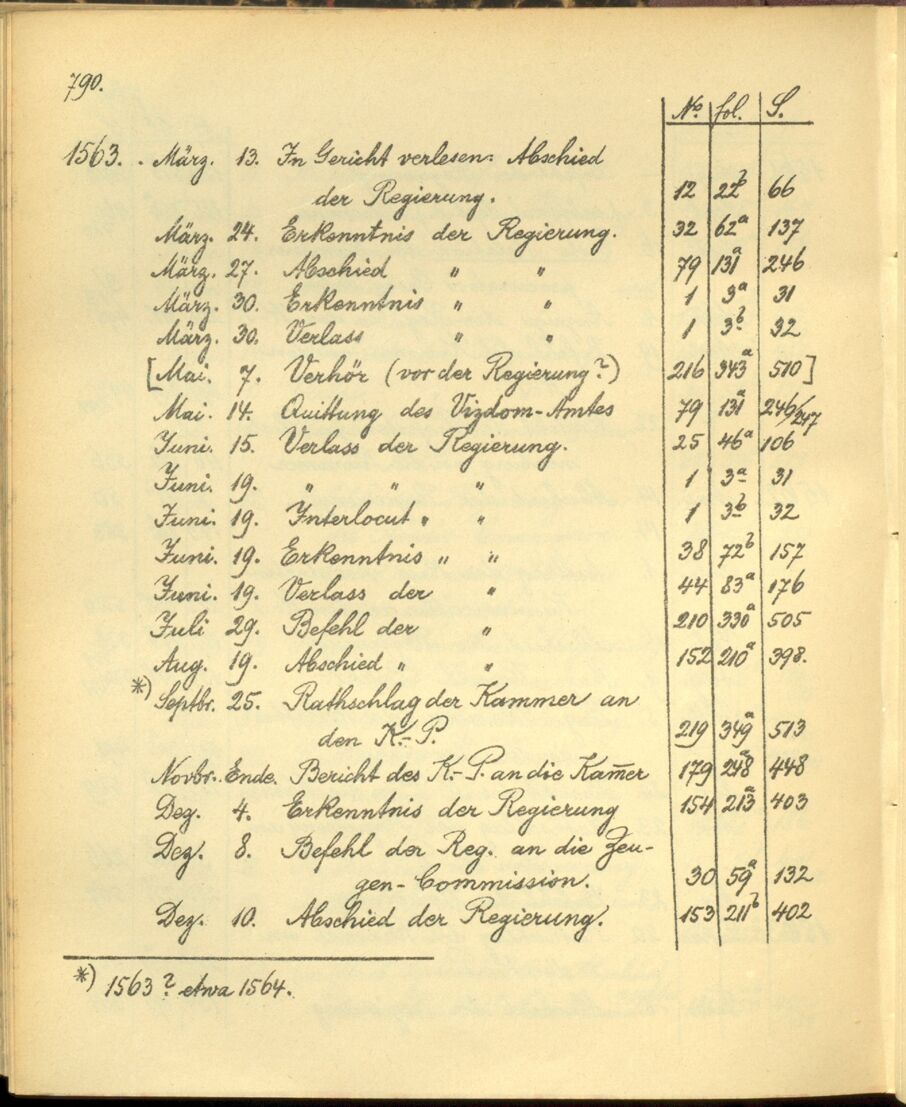 790.
No. fol. S.
1563. . März. 13. In Gericht verlesen: Abschied
der Regierung. 12 22b 66
März. 24. Erkenntnis der Regierung. 32 62a 137
März. 27. Abschied " " 79 131a 246
März. 30. Erkenntnis " " 1 3a 31
März. 30. Verlass " " 1 3b 32
[Mai. 7. Verhör (vor der Regierung?) 216 343a 510]
Mai. 14. Quittung des Vizdom-Amtes 79 131a 246/247
Juni. 15. Verlass der Regierung. 25 46a 106
Juni. 19. " " " 1 3a 31
Juni. 19. Interlocut " " 1 3b 32
Juni. 19. Erkenntnis " " 38 72b 157
Juni. 19. Verlass der " 44 83a 176
Juli 29. Befehl der " 210 330a 505
Aug. 19. Abschied " " 152 210a 398.
*) Septbr. 25. Rathschlag der Kammer an
den K.-P. 219 349a 513
Novbr. Ende. Bericht des K.-P. an die Kam̅er 179 248a 448
Dez. 4. Erkenntnis der Regierung 154 213a 403
Dez. 8. Befehl der Reg. an die Zeu-
gen-Commission. 30 59a 132
Dez. 10. Abschied der Regierung. 153 211b 402
*) 1563? etwa 1564.